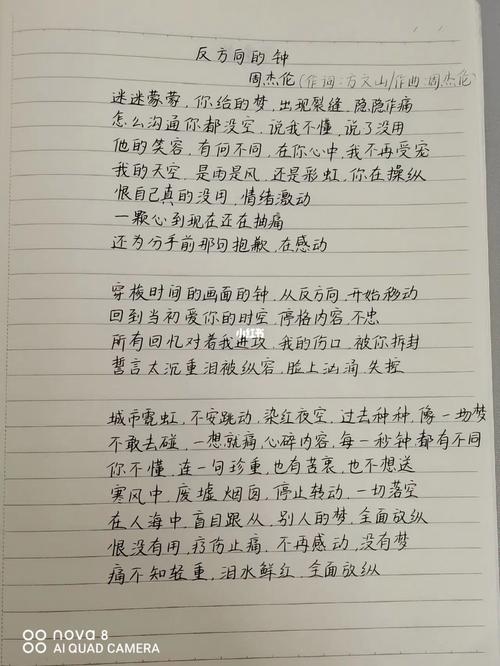 反方向的钟
周杰伦(作词:方文山/作曲:周杰伦)
迷迷蒙蒙,你给的梦,出现裂缝,隐隐作痛
怎么沟通你都没空,说我不懂,说了没用
他的笑容,有何不同,在你心中,我不再受宠
我的天空,是雨是风,还是彩虹,你在操纵
恨自己真的没用,情绪激动
一颗心到现在还在抽痛
还为分手前那句抱歉,在感动
穿梭时间的画面的钟,从反方向,开始移动
回到当初爱你的时空,停格内容,不忠
所有回忆对着我进攻,我的伤口,被你拆封
誓言太沉重泪被纵容,脸上汹涌,失控
城市霓虹,不安跳动,染红夜空,过去种种,像一场梦
不敢去碰,一想就痛,心碎内容,每一秒钟都有不同
你不懂,连一句珍重,也有苦衷,也不想送
寒风中,废墟烟囱,停止转动,一切落空
在人海中,盲目跟从,别人的梦,全面放纵
恨没有用,疗伤止痛,不再感动,没有梦
痛不知轻重,泪水鲜红,全面放纵
小红书
nova 8
AI QUAD CAMERA